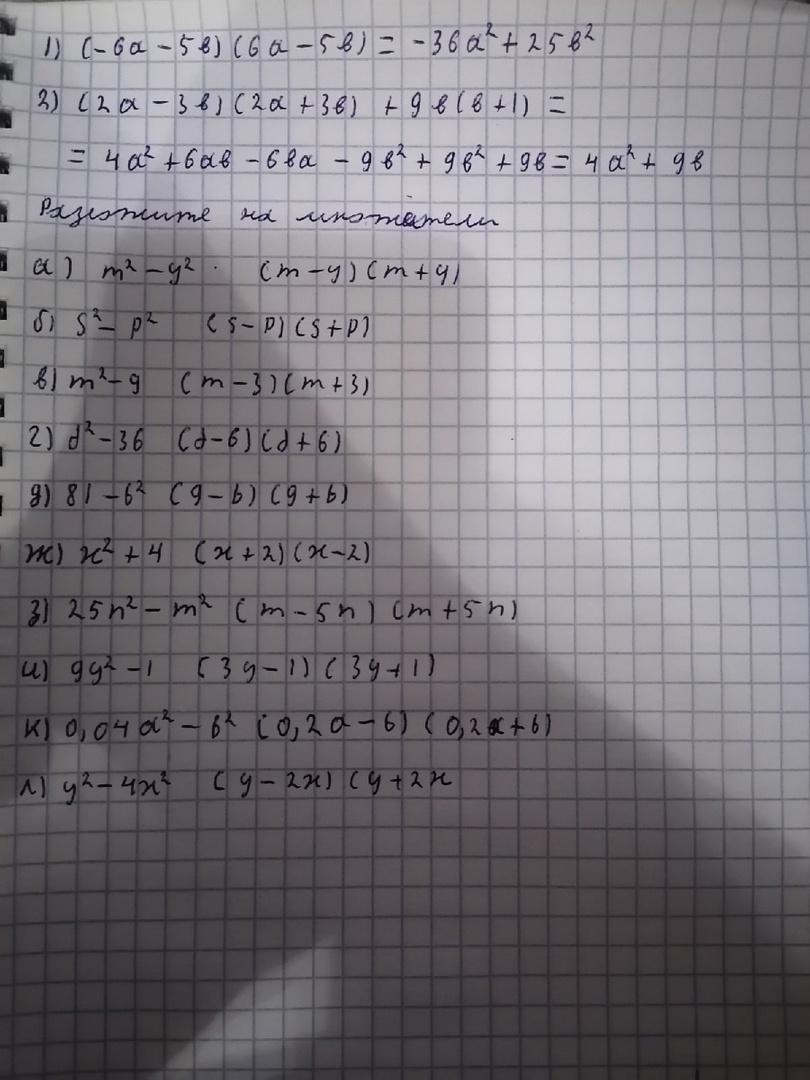 1) (-6a - 5в) (6a - 5в) = -36a² + 25в²
2) (2a - 3в) (2a + 3в) + 9в(в + 1) =
= 4a² + 6aв - 6вa - 9в² + 9в² + 9в = 4a² + 9в
Разложите на множители
а) m² - y² . (m - y) (m + y)
б) S² - p² (s - p) (s + p)
в) m² - 9 (m - 3) (m + 3)
г) d² - 36 (d - 6) (d + 6)
д) 81 - b² (9 - b) (9 + b)
ж) x² + 4 (x + 2) (x - 2)
з) 25n² - m² (m - 5n) (m + 5n)
и) 9y² - 1 (3y - 1) (3y + 1)
к) 0,04a² - b² (0,2a - b) (0,2a + b)
л) y² - 4x² (y - 2x) (y + 2x